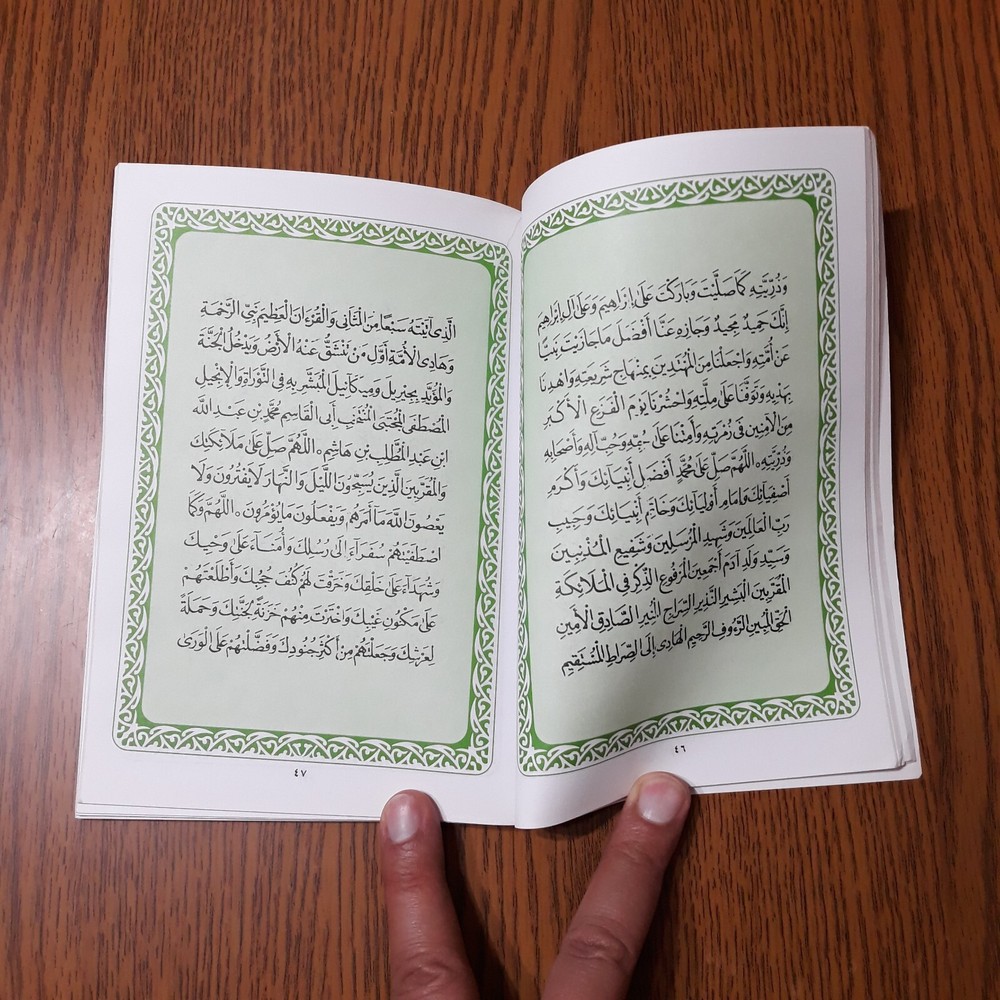 وَذُرِّيَّتِهِ كَمَا صَلَّيْتَ وَبَارَكْتَ عَلَى إِبْرَاهِيمَ وَعَلَى آلِ إِبْرَاهِيمَ
إِنَّكَ حَمِيدٌ مَجِيدٌ وَجَازِهِ عَنَّا أَفْضَلَ مَا جَازَيْتَ نَبِيًّا
عَنْ أُمَّتِهِ وَاجْعَلْنَا مِنَ الْمُهْتَدِينَ بِمِنْهَاجِ شَرِيعَتِهِ وَاهْدِنَا
بِهَدْيِهِ وَتَوَفَّنَا عَلَى مِلَّتِهِ وَاحْشُرْنَا يَوْمَ الْفَزَعِ الْأَكْبَرِ
مِنَ الْآمِنِينَ فِي زُمْرَتِهِ وَأَمِتْنَا عَلَى سُنَّتِهِ وَحُبِّ آلِهِ وَأَصْحَابِهِ
وَذُرِّيَّتِهِ ۞ اللَّهُمَّ صَلِّ عَلَى مُحَمَّدٍ أَفْضَلِ أَنْبِيَائِكَ وَأَكْرَمِ
أَصْفِيَائِكَ وَإِمَامِ أَوْلِيَائِكَ وَخَاتَمِ أَنْبِيَائِكَ وَحَبِيبِ
رَبِّ الْعَالَمِينَ وَشَهِيدِ الْمُرْسَلِينَ وَشَفِيعِ الْمُذْنِبِينَ
وَسَيِّدِ وَلَدِ آدَمَ أَجْمَعِينَ الْمَرْفُوعِ الذِّكْرِ فِي الْمَلَائِكَةِ
الْمُقَرَّبِينَ الْبَشِيرِ النَّذِيرِ السِّرَاجِ الْمُنِيرِ الصَّادِقِ الْأَمِينِ
الْحَقِّ الْمُبِينِ الرَّءُوفِ الرَّحِيمِ الْهَادِي إِلَى الصِّرَاطِ الْمُسْتَقِيمِ
٤٦
الَّذِي آتَيْتَهُ سَبْعًا مِنَ الْمَثَانِي وَالْقُرْءَانَ الْعَظِيمَ نَبِيِّ الرَّحْمَةِ
وَهَادِي الْأُمَّةِ أَوَّلِ مَنْ تَنْشَقُّ عَنْهُ الْأَرْضُ وَيَدْخُلُ الْجَنَّةَ
وَالْمُؤَيَّدِ بِجِبْرِيلَ وَمِيكَائِيلَ الْمُبَشَّرِ بِهِ فِي التَّوْرَاةِ وَالْإِنْجِيلِ
الْمُصْطَفَى الْمُجْتَبَى الْمُنْتَخَبِ أَبِي الْقَاسِمِ مُحَمَّدِ بْنِ عَبْدِ اللَّهِ
ابْنِ عَبْدِ الْمُطَّلِبِ بْنِ هَاشِمٍ ۞ اللَّهُمَّ صَلِّ عَلَى مَلَائِكَتِكَ
وَالْمُقَرَّبِينَ الَّذِينَ يُسَبِّحُونَ اللَّيْلَ وَالنَّهَارَ لَا يَفْتُرُونَ وَلَا
يَعْصُونَ اللَّهَ مَا أَمَرَهُمْ وَيَفْعَلُونَ مَا يُؤْمَرُونَ ۞ اللَّهُمَّ وَكَمَا
اصْطَفَيْتَهُمْ سُفَرَاءَ إِلَى رُسُلِكَ وَأُمَنَاءَ عَلَى وَحْيِكَ
وَشُهَدَاءَ عَلَى خَلْقِكَ وَخَرَقْتَ لَهُمْ كُنُفَ حُجُبِكَ وَأَطْلَعْتَهُمْ
عَلَى مَكْنُونِ غَيْبِكَ وَاخْتَرْتَ مِنْهُمْ خَزَنَةً لِجَنَّتِكَ وَحَمَلَةً
لِعَرْشِكَ وَجَعَلْتَهُمْ مِنْ أَكْثَرِ جُنُودِكَ وَفَضَّلْتَهُمْ عَلَى الْوَرَى
٤٧